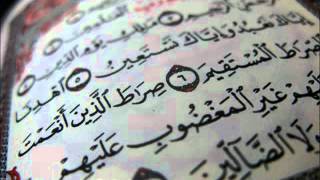 الرَّحِيمِ ۝ مَالِكِ يَوْمِ الدِّينِ
إِيَّاكَ نَعْبُدُ وَإِيَّاكَ نَسْتَعِينُ ۝ اهْدِنَا
الصِّرَاطَ الْمُسْتَقِيمَ ۝ صِرَاطَ الَّذِينَ أَنْعَمْتَ
عَلَيْهِمْ غَيْرِ الْمَغْضُوبِ عَلَيْهِمْ
وَلَا الضَّالِّينَ